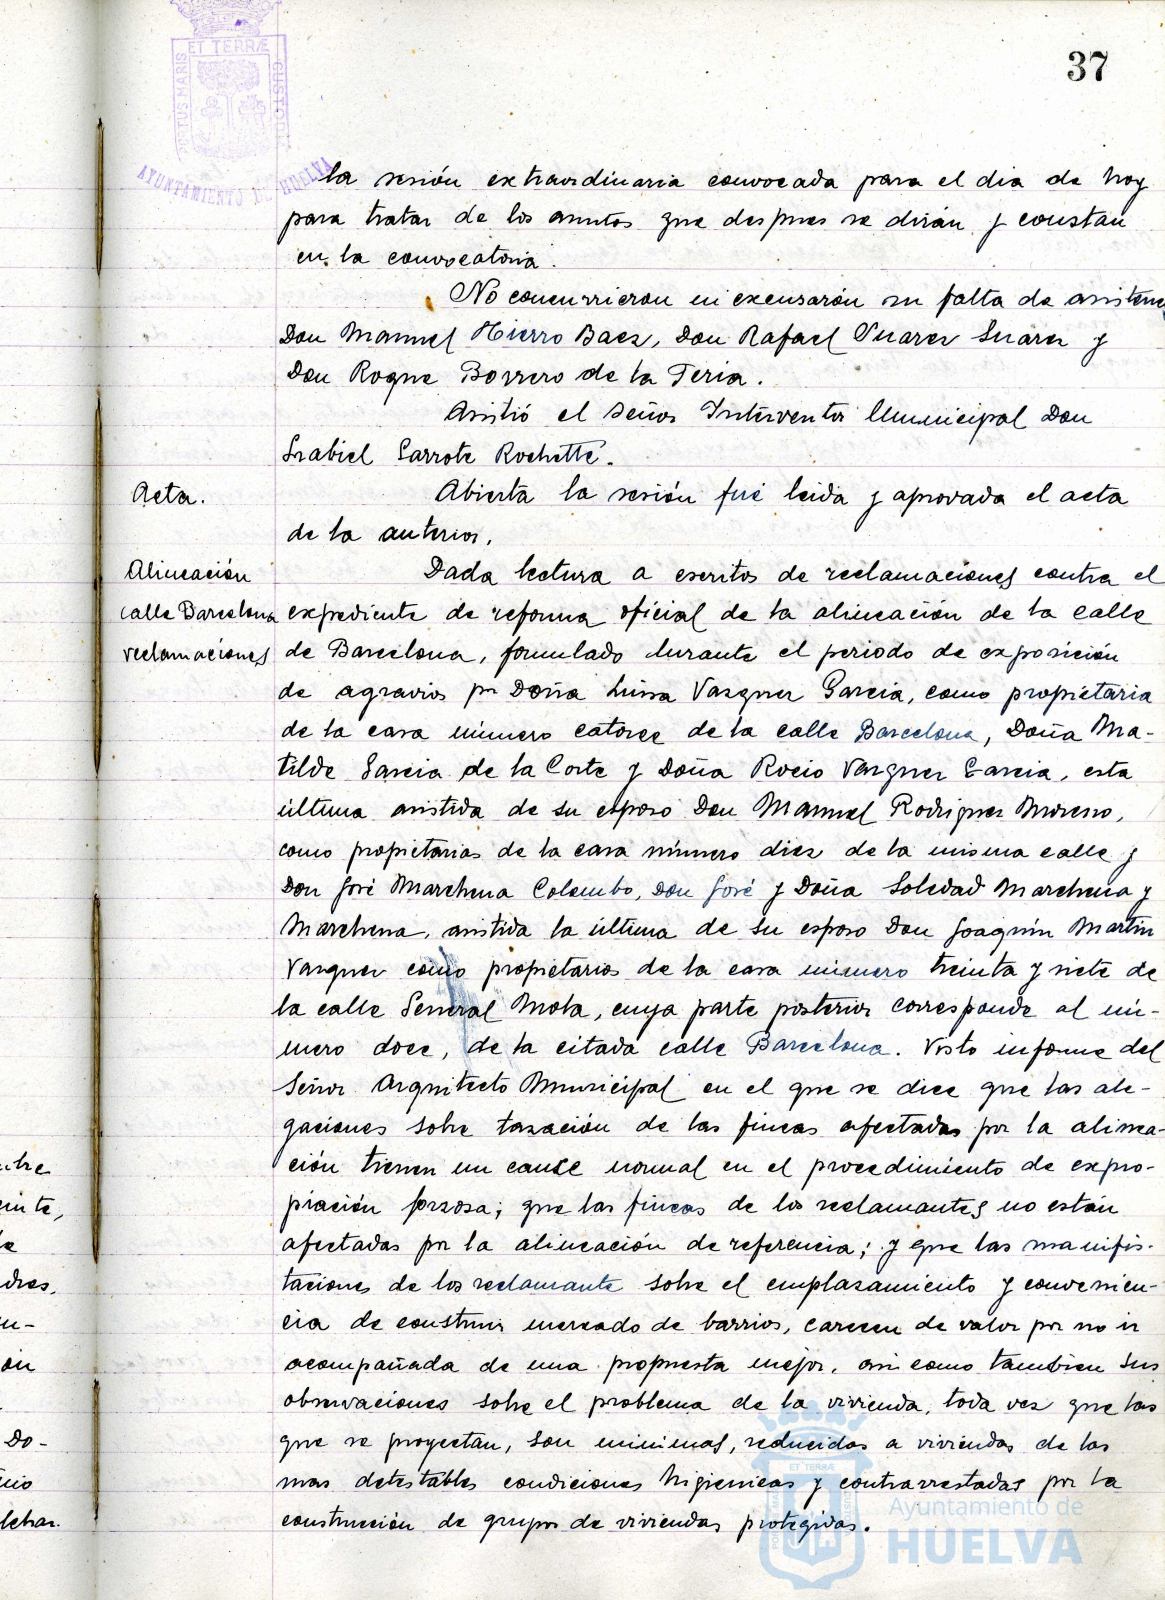 37
ET TERRÆ
PORTUS MARIS
CUSTODIA
AYUNTAMIENTO DE HUELVA
la sesión extraordinaria convocada para el dia de hoy
para tratar de los asuntos que despues se dirán y constan
en la convocatoria.
No concurrieron ni excusarón su falta de asistenc
Don Manuel Hierro Baez, Don Rafael Suarez Suarez y
Don Roque Borrero de la Feria.
Asistió el Señor Interventor Municipal Don
Garrote Rochette.
Acta.
Abierta la sesión fué leida y aprovada el acta
de la anterior.
Alineación
calle Barcelona
reclamaciónes
Dada lectura a escritos de reclamaciónes contra el
expediente de reforma oficial de la alineación de la calle
de Barcelona, formulado durante el periodo de exposición
de agravios por Doña Luisa Vazquez Garcia, como propietaria
de la casa número catorce de la calle Barcelona, Doña Ma-
tilde Garcia de la Corte y Doña Rocio Vazquez Garcia, esta
última asistida de su esposo Don Manuel Rodriguez Moreno,
como propietarias de la casa número diez de la misma calle y
Don José Marchena Colombo, Don José y Doña Soledad Marchena y
Marchena, asistida la última de su esposo Don Joaquín Martín
Vazquez como propietarios de la casa número treinta y siete de
la calle General Mola, cuya parte posterior corresponde al nú-
mero doce, de la citada calle Barcelona. Visto informe del
Señor Arquitecto Municipal en el que se dice que las ale-
gaciones sobre tasación de las fincas afectadas por la alinea-
ción tienen un cause normal en el procedimiento de expro-
piación forzosa; que las fincas de los reclamantes no están
afectadas por la alineación de referencia; y que las manifes-
taciones de los reclamante sobre el emplazamiento y convenien-
cia de construir mercado de barrios, carecen de valor por no ir
acompañada de una propuesta mejor, asi como tambien sus
observaciones sobre el problema de la vivienda, toda vez que las
que se proyectan, son minimas, reducidas a viviendas de las
mas detestables condiciones higienicas y contrarrestadas por la
construcción de grupos de viviendas protegidas.
Ayuntamiento de
HUELVA